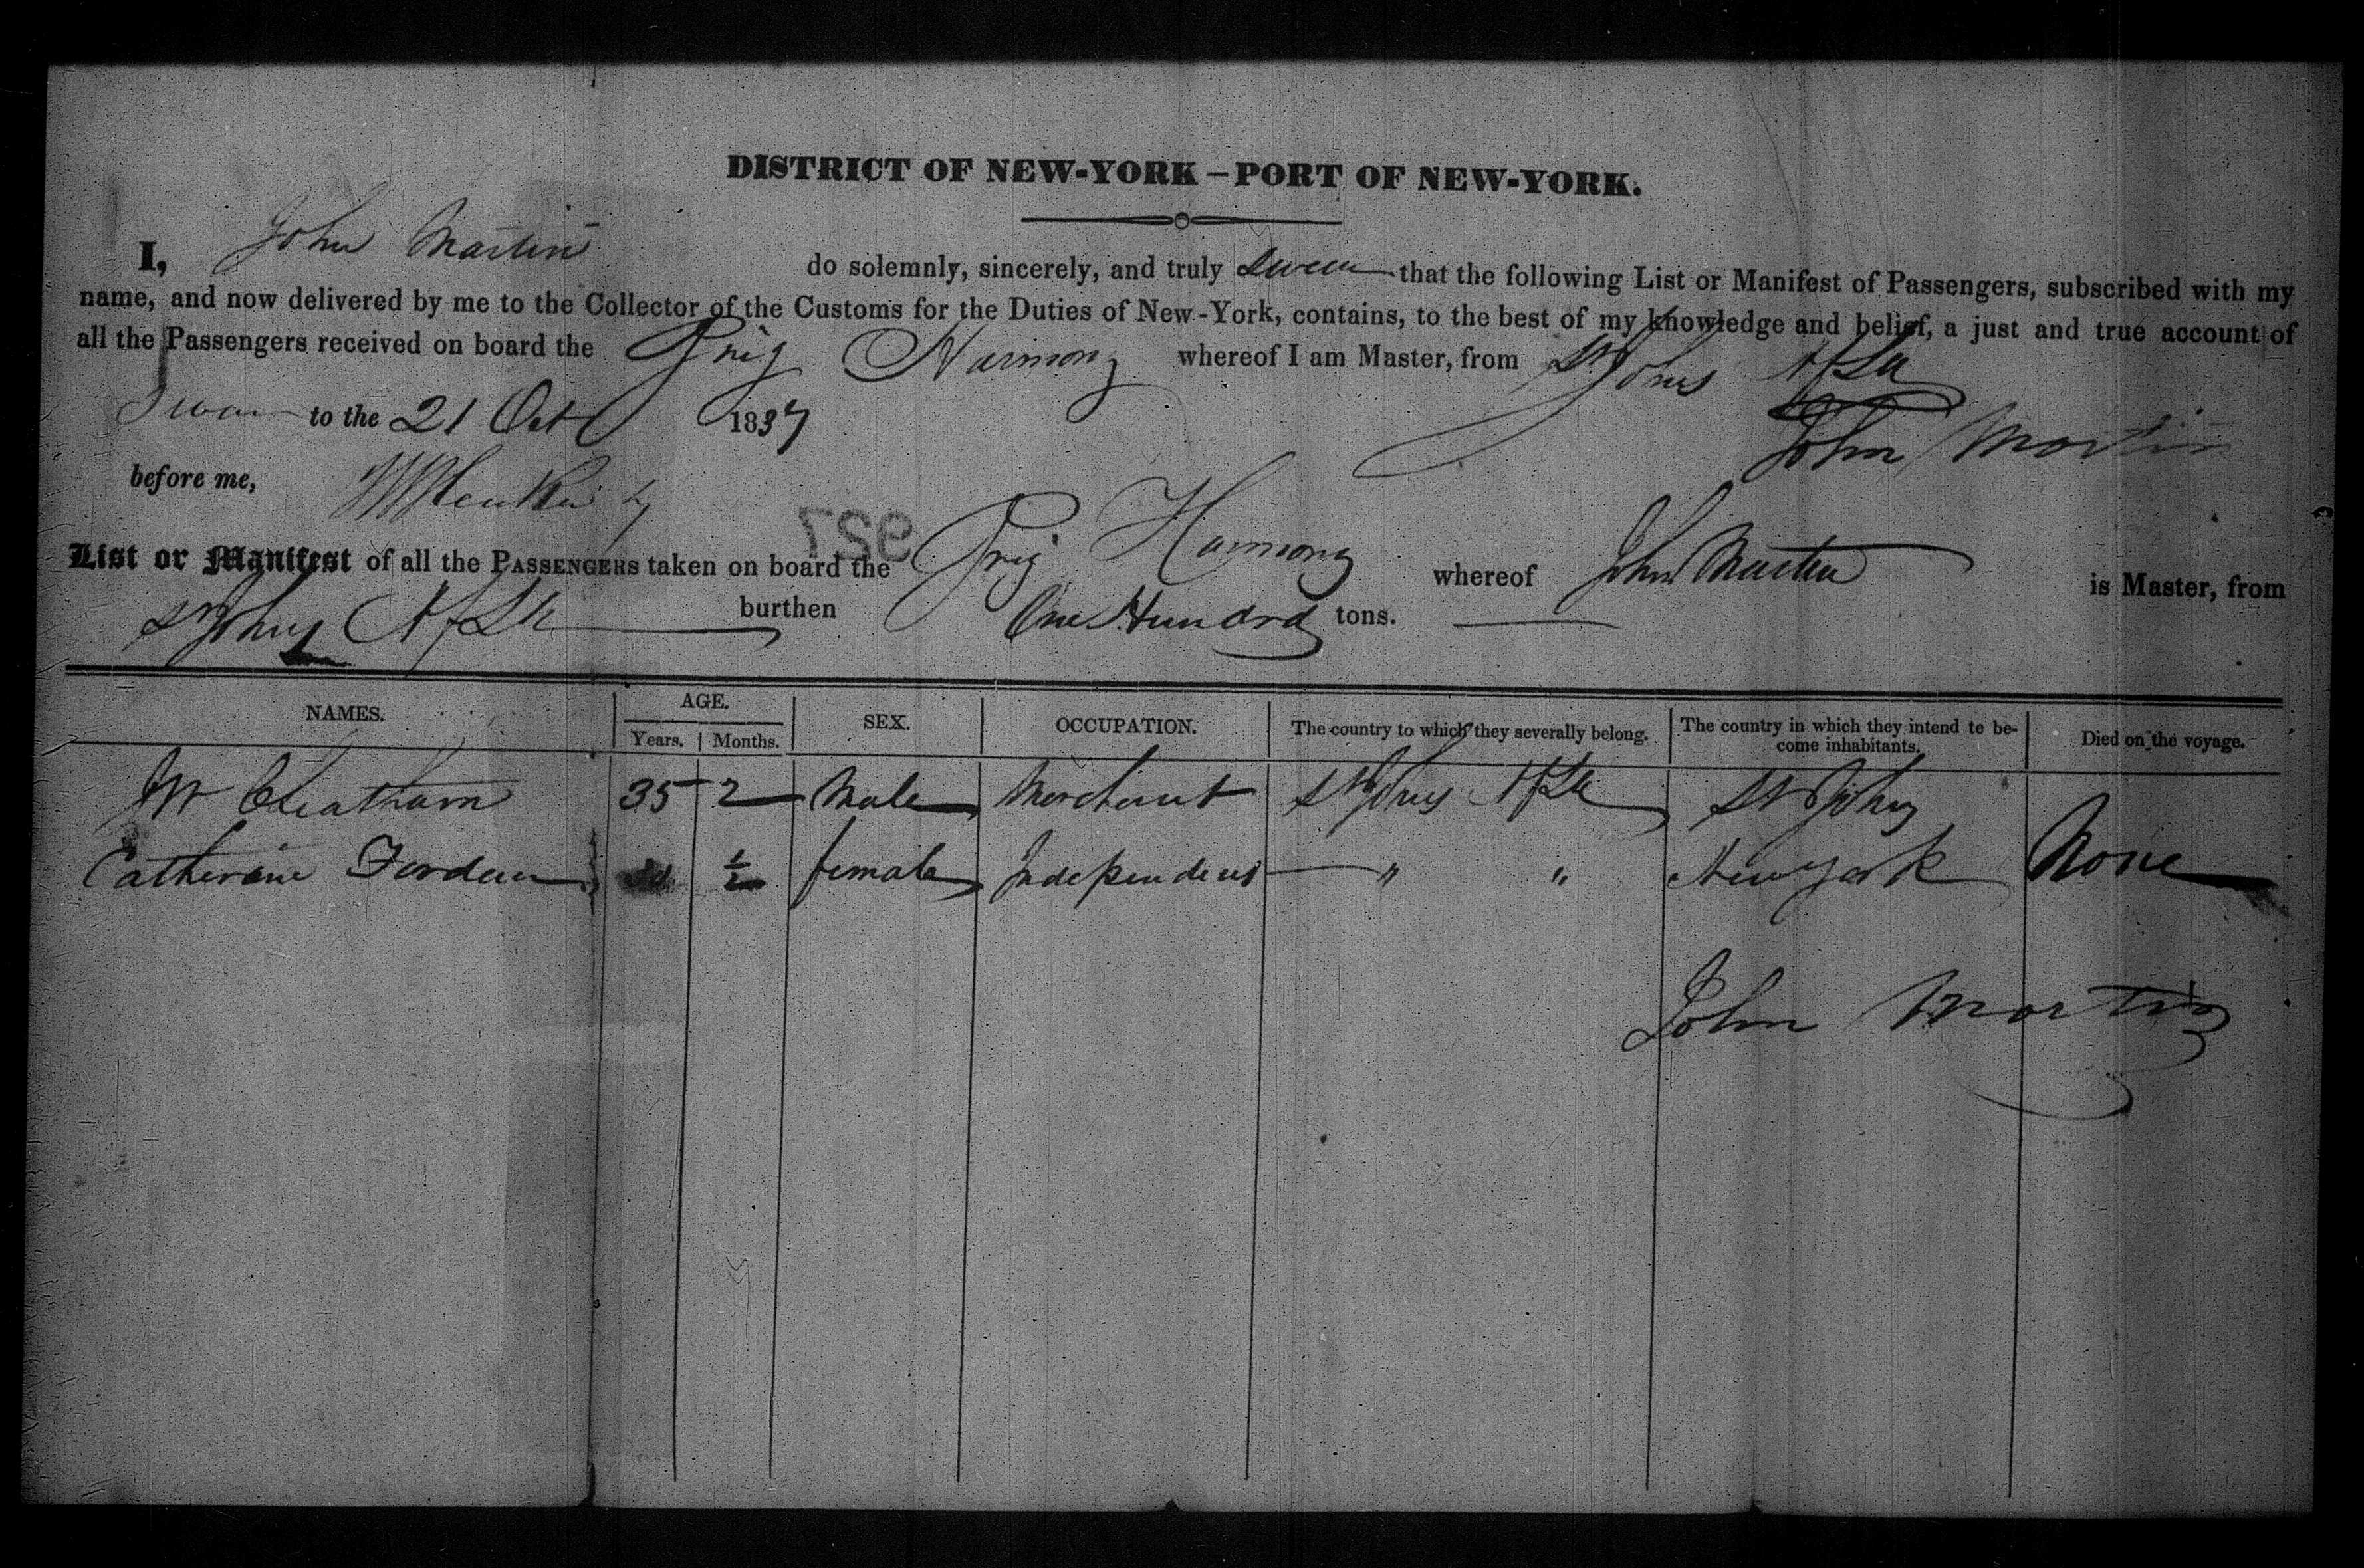 DISTRICT OF NEW-YORK – PORT OF NEW-YORK.
I, John Martin do solemnly, sincerely, and truly swear that the following List or Manifest of Passengers, subscribed with my
name, and now delivered by me to the Collector of the Customs for the Duties of New-York, contains, to the best of my knowledge and belief, a just and true account of
all the Passengers received on board the Brig Harmony whereof I am Master, from St Johns NfLd
Sworn to the 21 Oct 1837
John Martin
before me,
927
List or Manifest of all the PASSENGERS taken on board the Brig Harmony whereof John Martin is Master, from
St Johns NfLd burthen One Hundred tons.
NAMES. AGE. SEX. OCCUPATION. The country to which they severally belong. The country in which they intend to be- Died on the voyage.
Years. Months. come inhabitants.
Mr Cheatham 35 2 Male Merchant St Johns NfLd St Johns
Catherine ½ female Independent " " New york None
John Martin